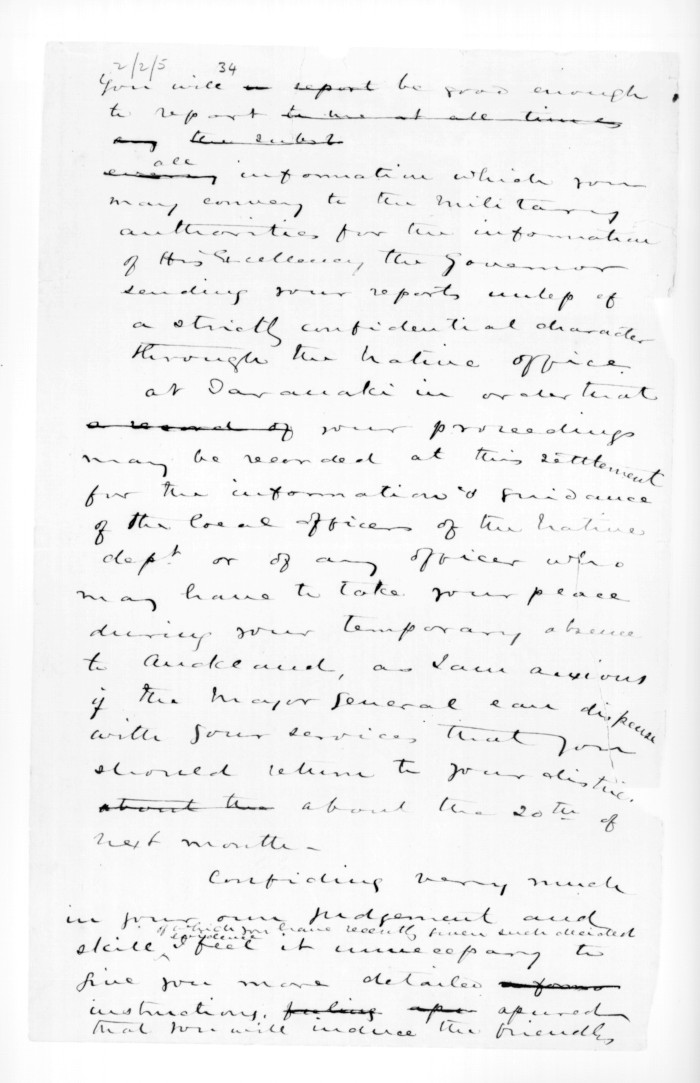 2/2/5 34
You will to report be good enough
to report to me at all times
any the subst
all
every information which you
may convey to the Military
authorities for the information
of His Excellency the Governor
sending your reports unless of
a strictly confidential character
through the Native office
at Taranaki in order that
a record of your proceedings
may be recorded at this settlement
for the information & guidance
of the local officers of the Native
dept. or of any officer who
may have to take your peace
during your temporary absence
to Auckland, as I am anxious
if the Major General can dispense
with your services that you
should return to your distric
about the about the 20th of
next month -
Confiding very much
in your own judgement and
of which you have recently given such decided
evidence
skill, I feel it unnecessary to
give you more detailed
instructions, feeling assured
that you will induce the friendly